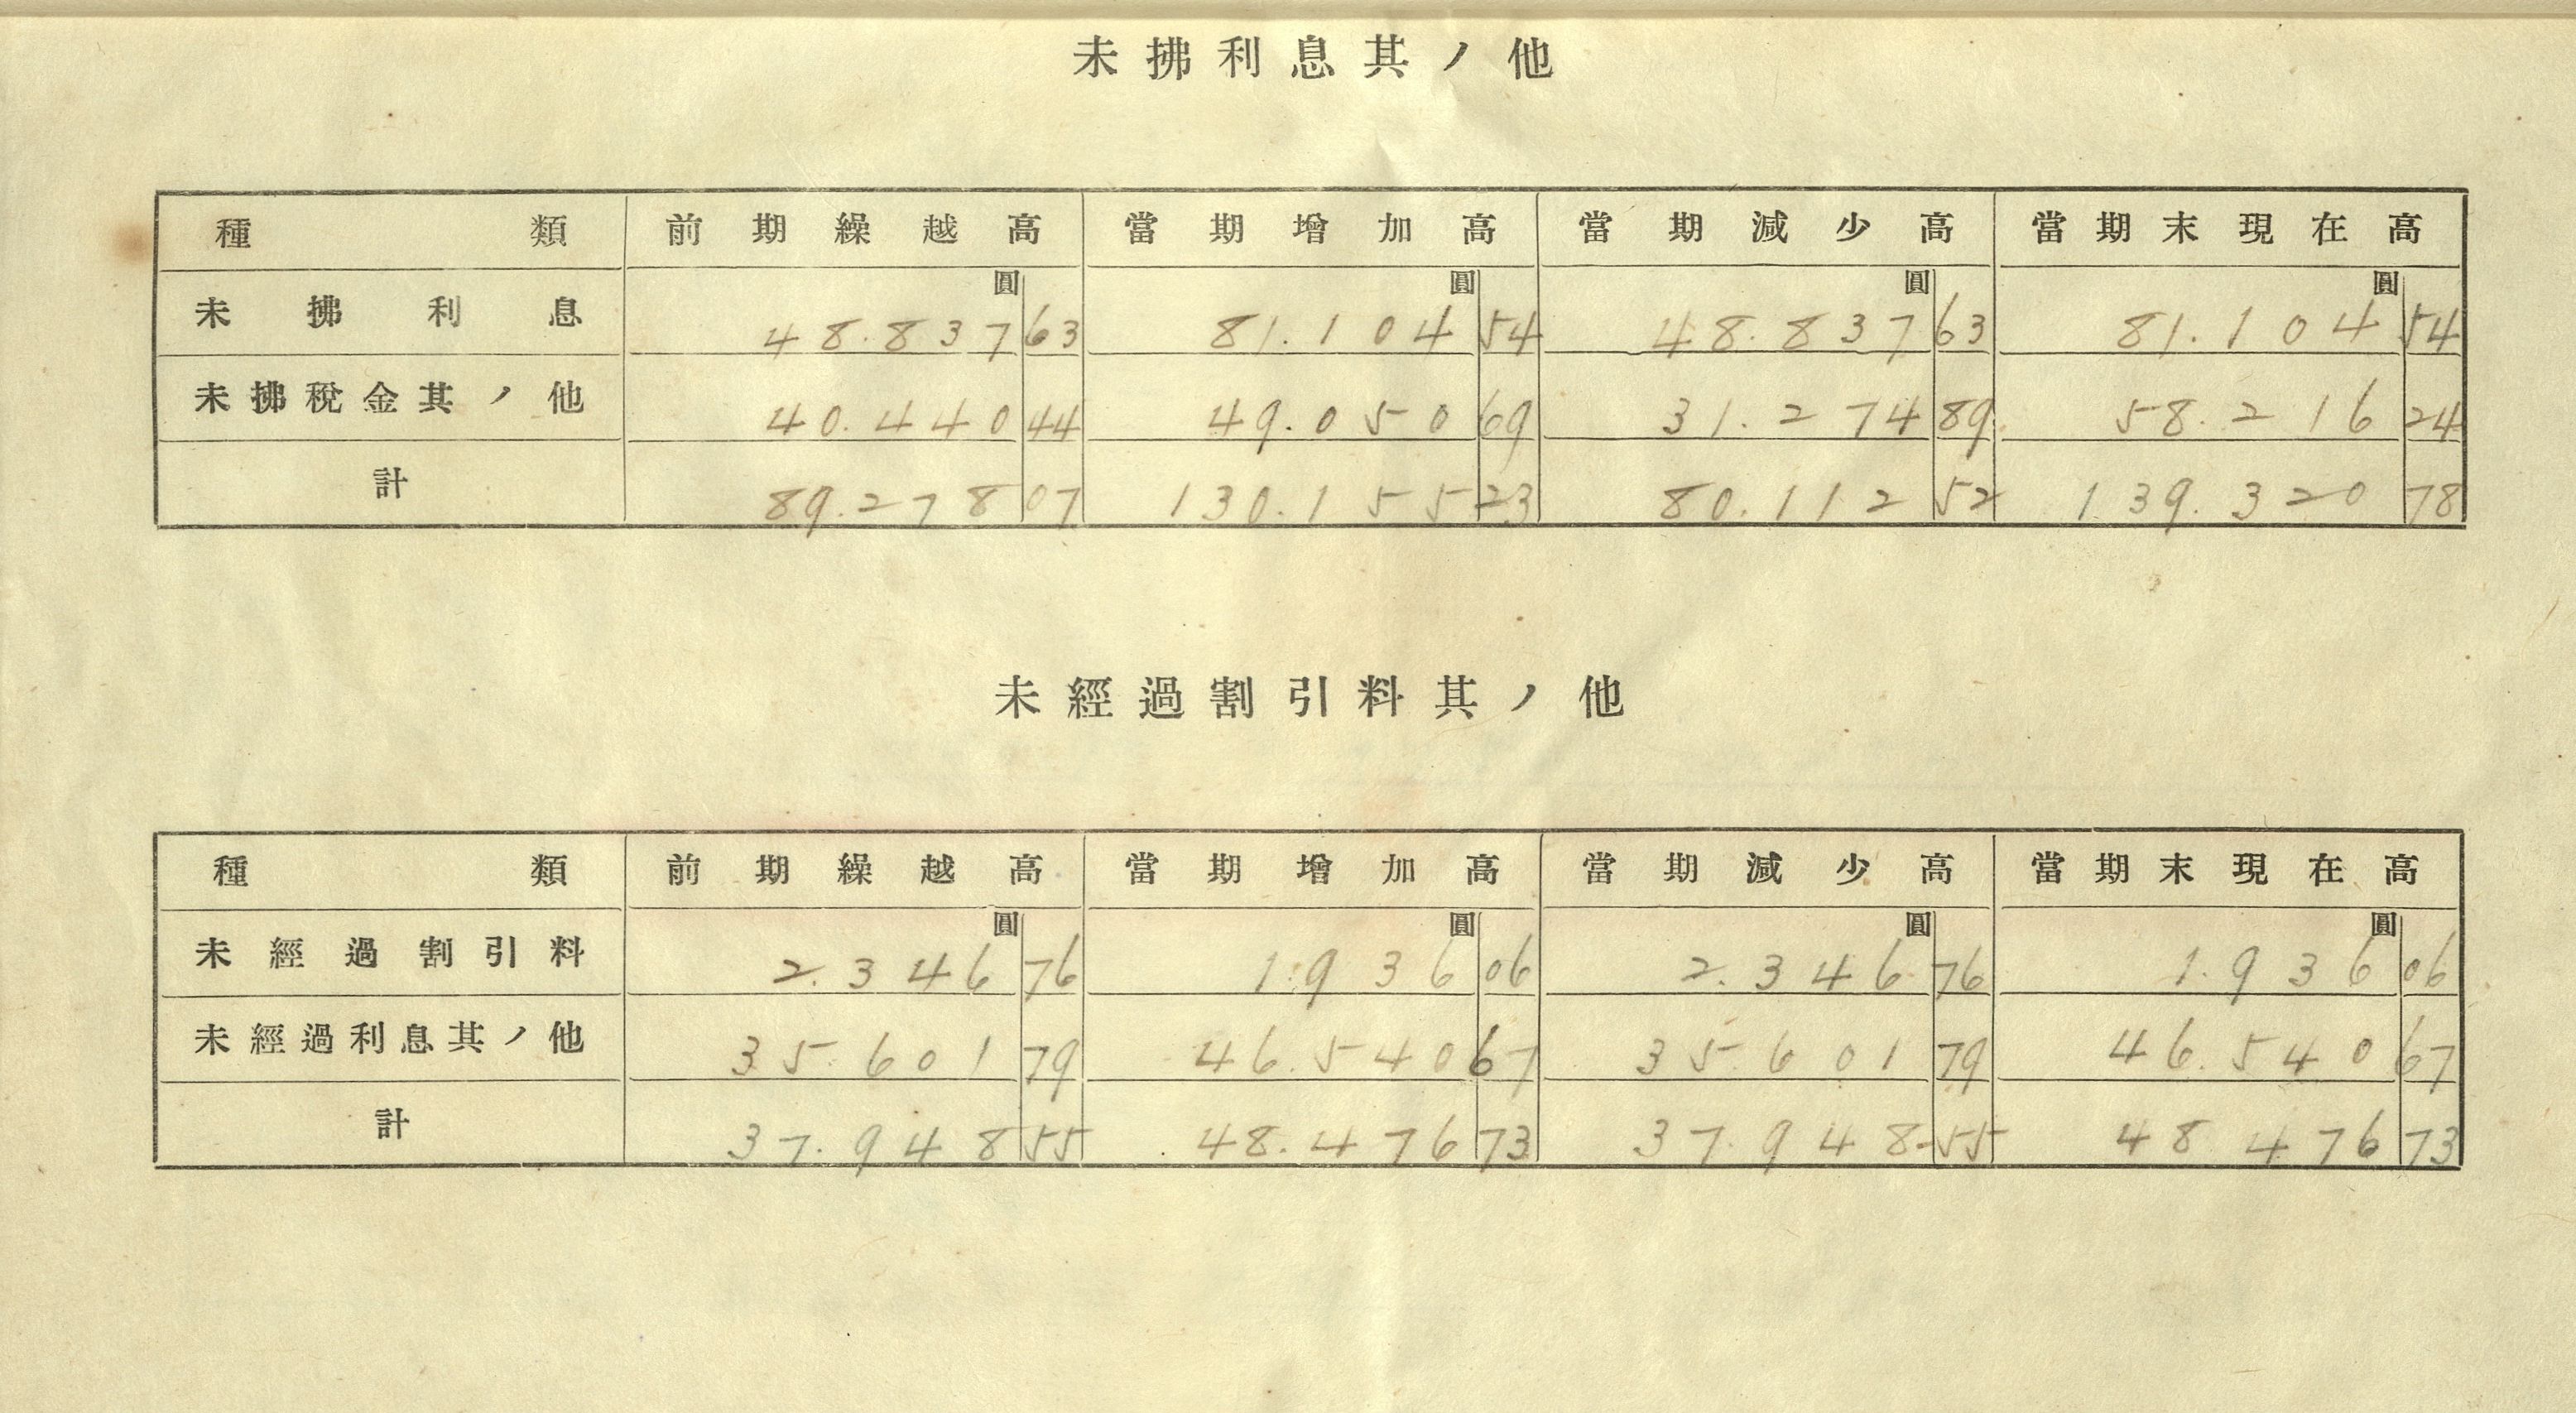 未拂利息其ノ他
種類 前期繰越高 當期增加高 當期減少高 當期末現在高
圓 圓 圓 圓
未拂利息 48.837 63 81.104 54 48.837 63 81.104 54
未拂稅金其ノ他 40.440 44 49.050 69 31.274 89 58.216 24
計 89.278 07 130.155 23 80.112 52 139.320 78
未經過割引料其ノ他
種類 前期繰越高 當期增加高 當期減少高 當期末現在高
圓 圓 圓 圓
未經過割引料 2.346 76 1.936 06 2.346 76 1.936 06
未經過利息其ノ他 35.601 79 46.540 67 35.601 79 46.540 67
計 37.948 55 48.476 73 37.948 55 48 476 73